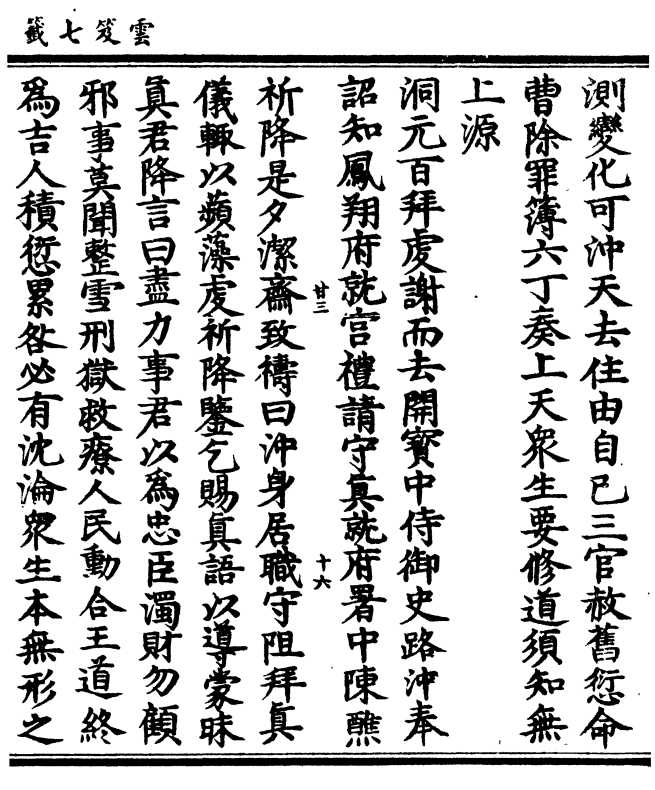 雲笈七籤
測變化可沖天去住由自己三官赦舊愆命
曹除罪簿六丁奏上天衆生要修道須知無
上源
洞元百拜虔謝而去開寳中侍御史路沖奉
詔知鳳翔府就宫禮請守真就府署中陳醮
甘三
十六
祈降是夕潔齋致禱曰沖身居職守阻拜真
儀輙以蘋藻虔祈降鑒乞賜真語以導蒙昧
真君降言曰盡力事君以為忠臣濁財勿顧
邪事莫聞整雪刑獄救療人民動合王道終
為吉人積愆累咎必有沈淪衆生本無形之